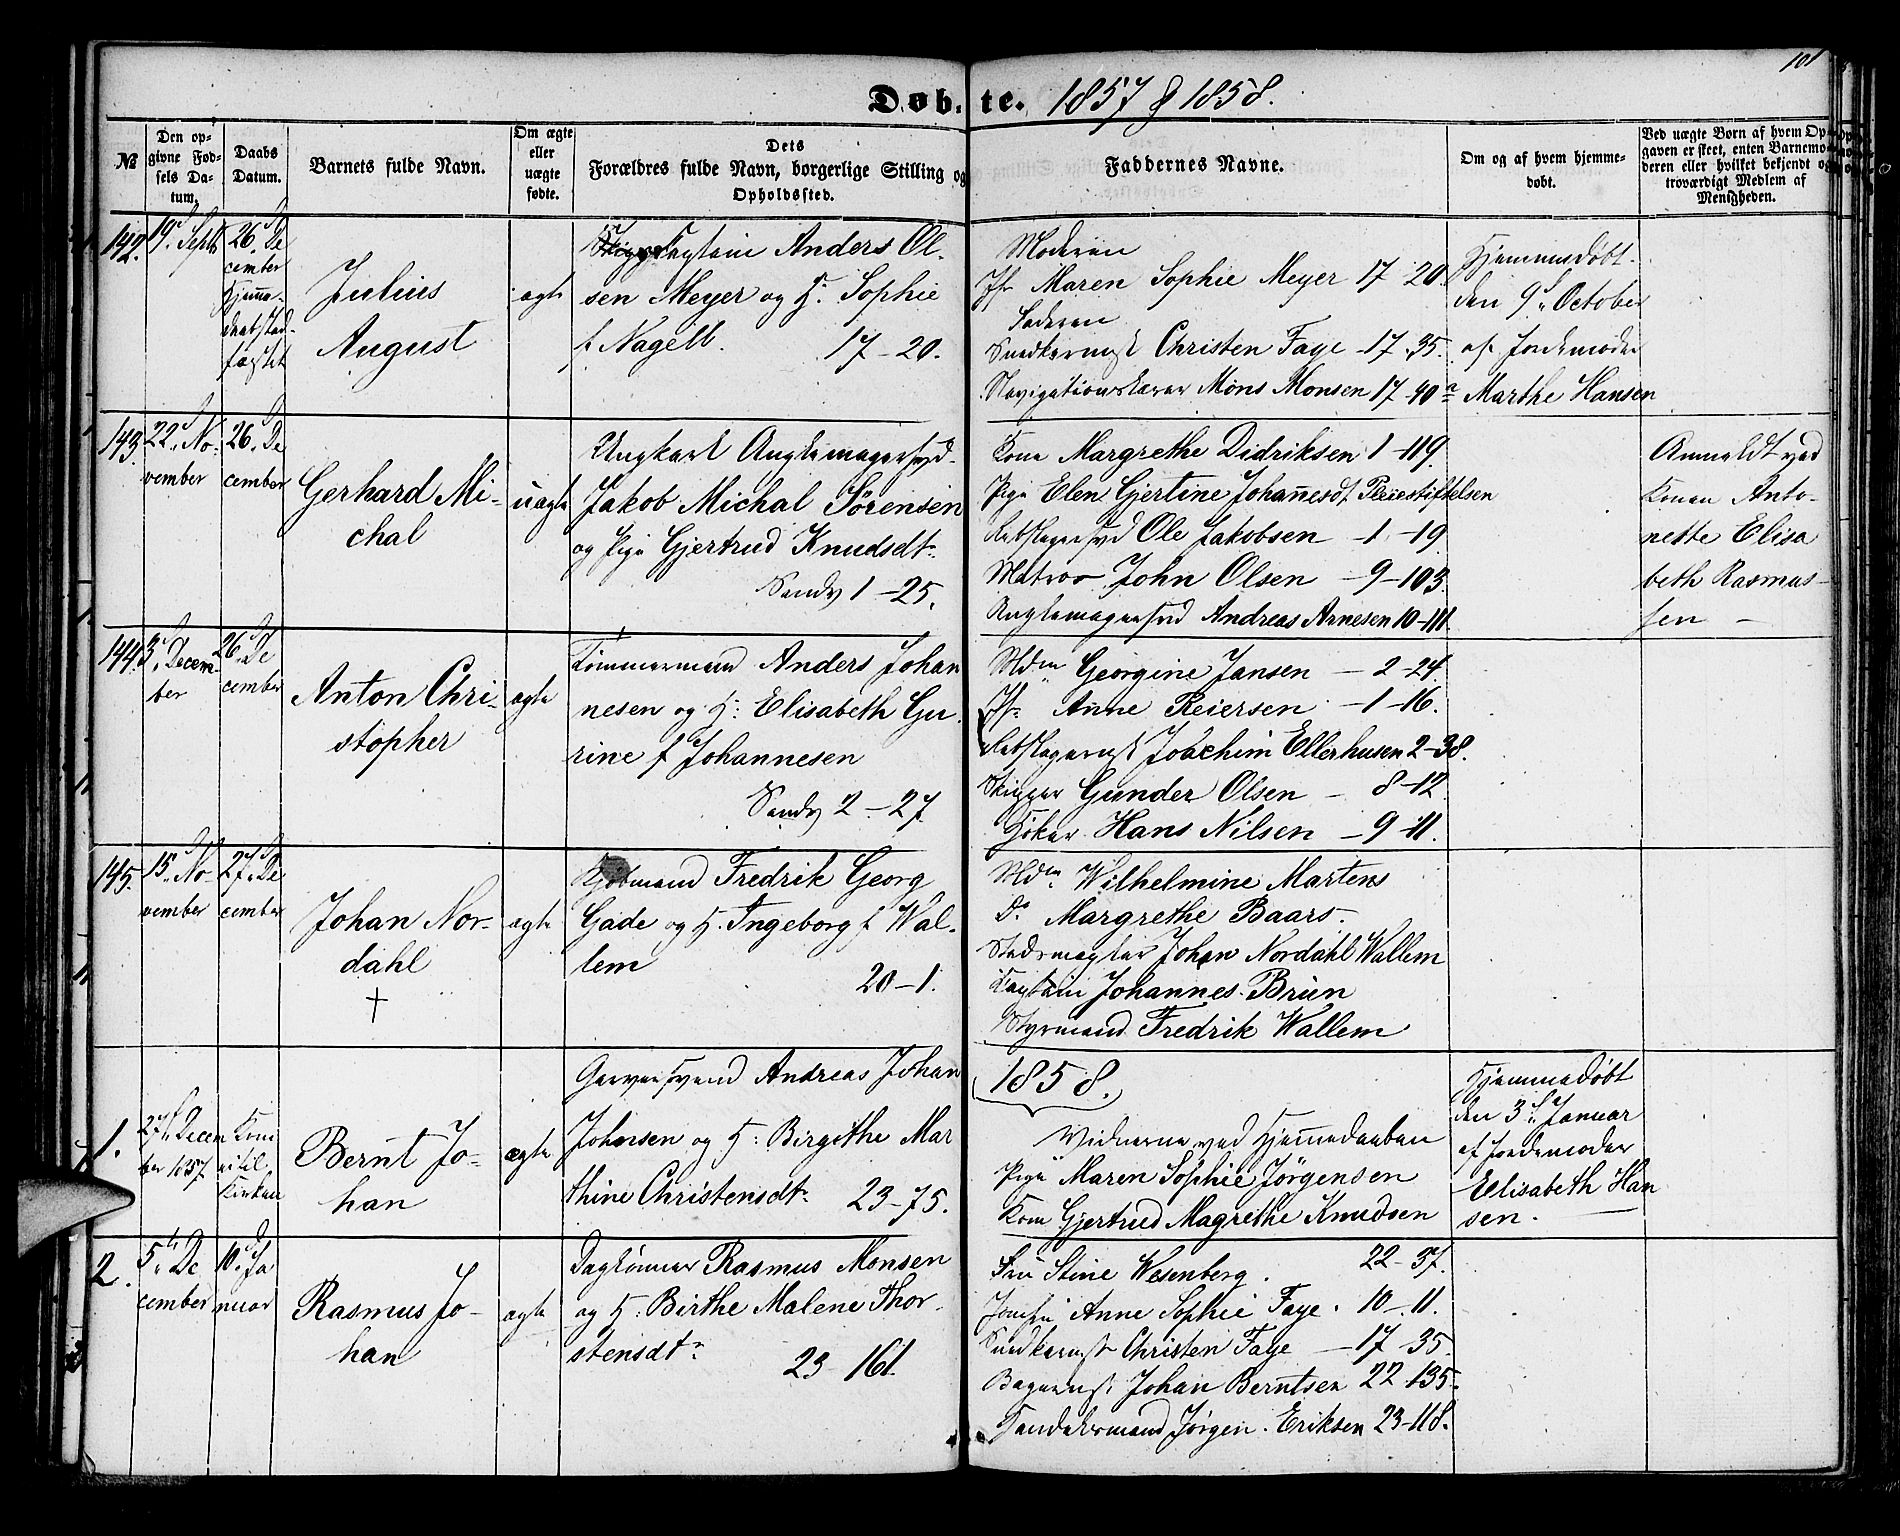 101
Døbte. 1857 & 1858.
№
Den op-
givne Fød-
sels Da-
tum.
Daabs
Datum.
Barnets fulde Navn.
Om ægte
eller
uægte
fødte.
Dets
Forældres fulde Navn, borgerlige Stilling og
Opholdssted.
Faddernes Navne.
Om og af hvem hjemme-
døbt.
Ved uægte Børn af hvem Op-
gaven er skeet, enten Barnemo-
deren eller hvilket bekjendt og
troværdigt Medlem af
Menigheden.
142.
19. Septb
26. De
cember
Hjemme-
daab stad-
fæstet
Julius
August
ægte
Captain Anders Ol-
sen Meyer og H. Sophie
f Nagell. 17-20.
Moderen
Jfr Maren Sophie Meyer 17-20.
Faderen
Snedkermst Christen Faye -17-35.
Navigationslærer Mons Monsen 17-40a
Hjemmedøbt
den 9d October
af Jordemoder
Marthe Hansen
143.
22. No-
vember
26. De
cember
Gerhard Mi-
chal
uægte
Ungkarl Anglemagersvd
Jakob Michal Sørensen
og Pige Gjertrud Knudsdtr
Sandv 1-25.
Kone Margrethe Didriksen 1-119.
Pige Elen Gjertine Johannesdt Pleiestiftelsen
Rebslagersvd Ole Jakobsen -1-19.
Matros John Olsen -9-103.
Anglemagersvd Andreas Arnesen 10-111.
Anmeldt ved
Konen Anto-
nette Elisa
beth Rasmus-
sen -
144.
3. Decem-
ber
26. De
cember
Anton Chri-
stopher
ægte
Tømmermand Anders Johan
nesen og H: Elisabeth Gu-
rine f Johannesen
Sandv 2-27
Mdm Georgine Jansen - 2-24.
Jfr Anne Reiersen -1-16.
Rebslagermst Joachim Ellerhusen 2-38.
Skipper Gunder Olsen - 8-12
Høker Hans Nilsen -9-11.
145.
15. No-
vember
27. De
cember
Johan Nor-
dahl
†
ægte
Kjøbmand Fredrik Georg
Gade og H. Ingeborg f Wal-
lem
20-1.
Mdm. Wilhelmine Martens
Do. Margrethe Baars.
Stadsmægler Johan Nordahl Wallem
Captain Johannes Brun
Styrmand Fredrik Wallem
1858.
1.
27. Decem
ber 1857.
Kom
ei til
Kirken
Bernt Jo-
han
ægte
Garversvend Andreas Johan
Johnsen og H: Birgithe Mar
thine Christensdtr 23-75.
Vidnerne ved Hjemmedaaben
Pige Maren Sophie Jørgensen
Kone Gjertrud Magrethe Knudsen
Hjemmedøbt
den 3d Januar
af Jordemoder
Elisabeth Han
sen.
2.
5. De
cember
10. Ja
nuar
Rasmus Jo-
han
ægte
Daglønner Rasmus Monsen
og H: Birthe Malene Thor-
stensdtr 23-161.
Fru Stine Wesenberg. 22-37.
Jomfru Anne Sophie Faye. 10-11.
Snedkermst Christen Faye -17-35.
Bagermst. Johan Berntsen 22-135.
Jørgen Eriksen 23-118.